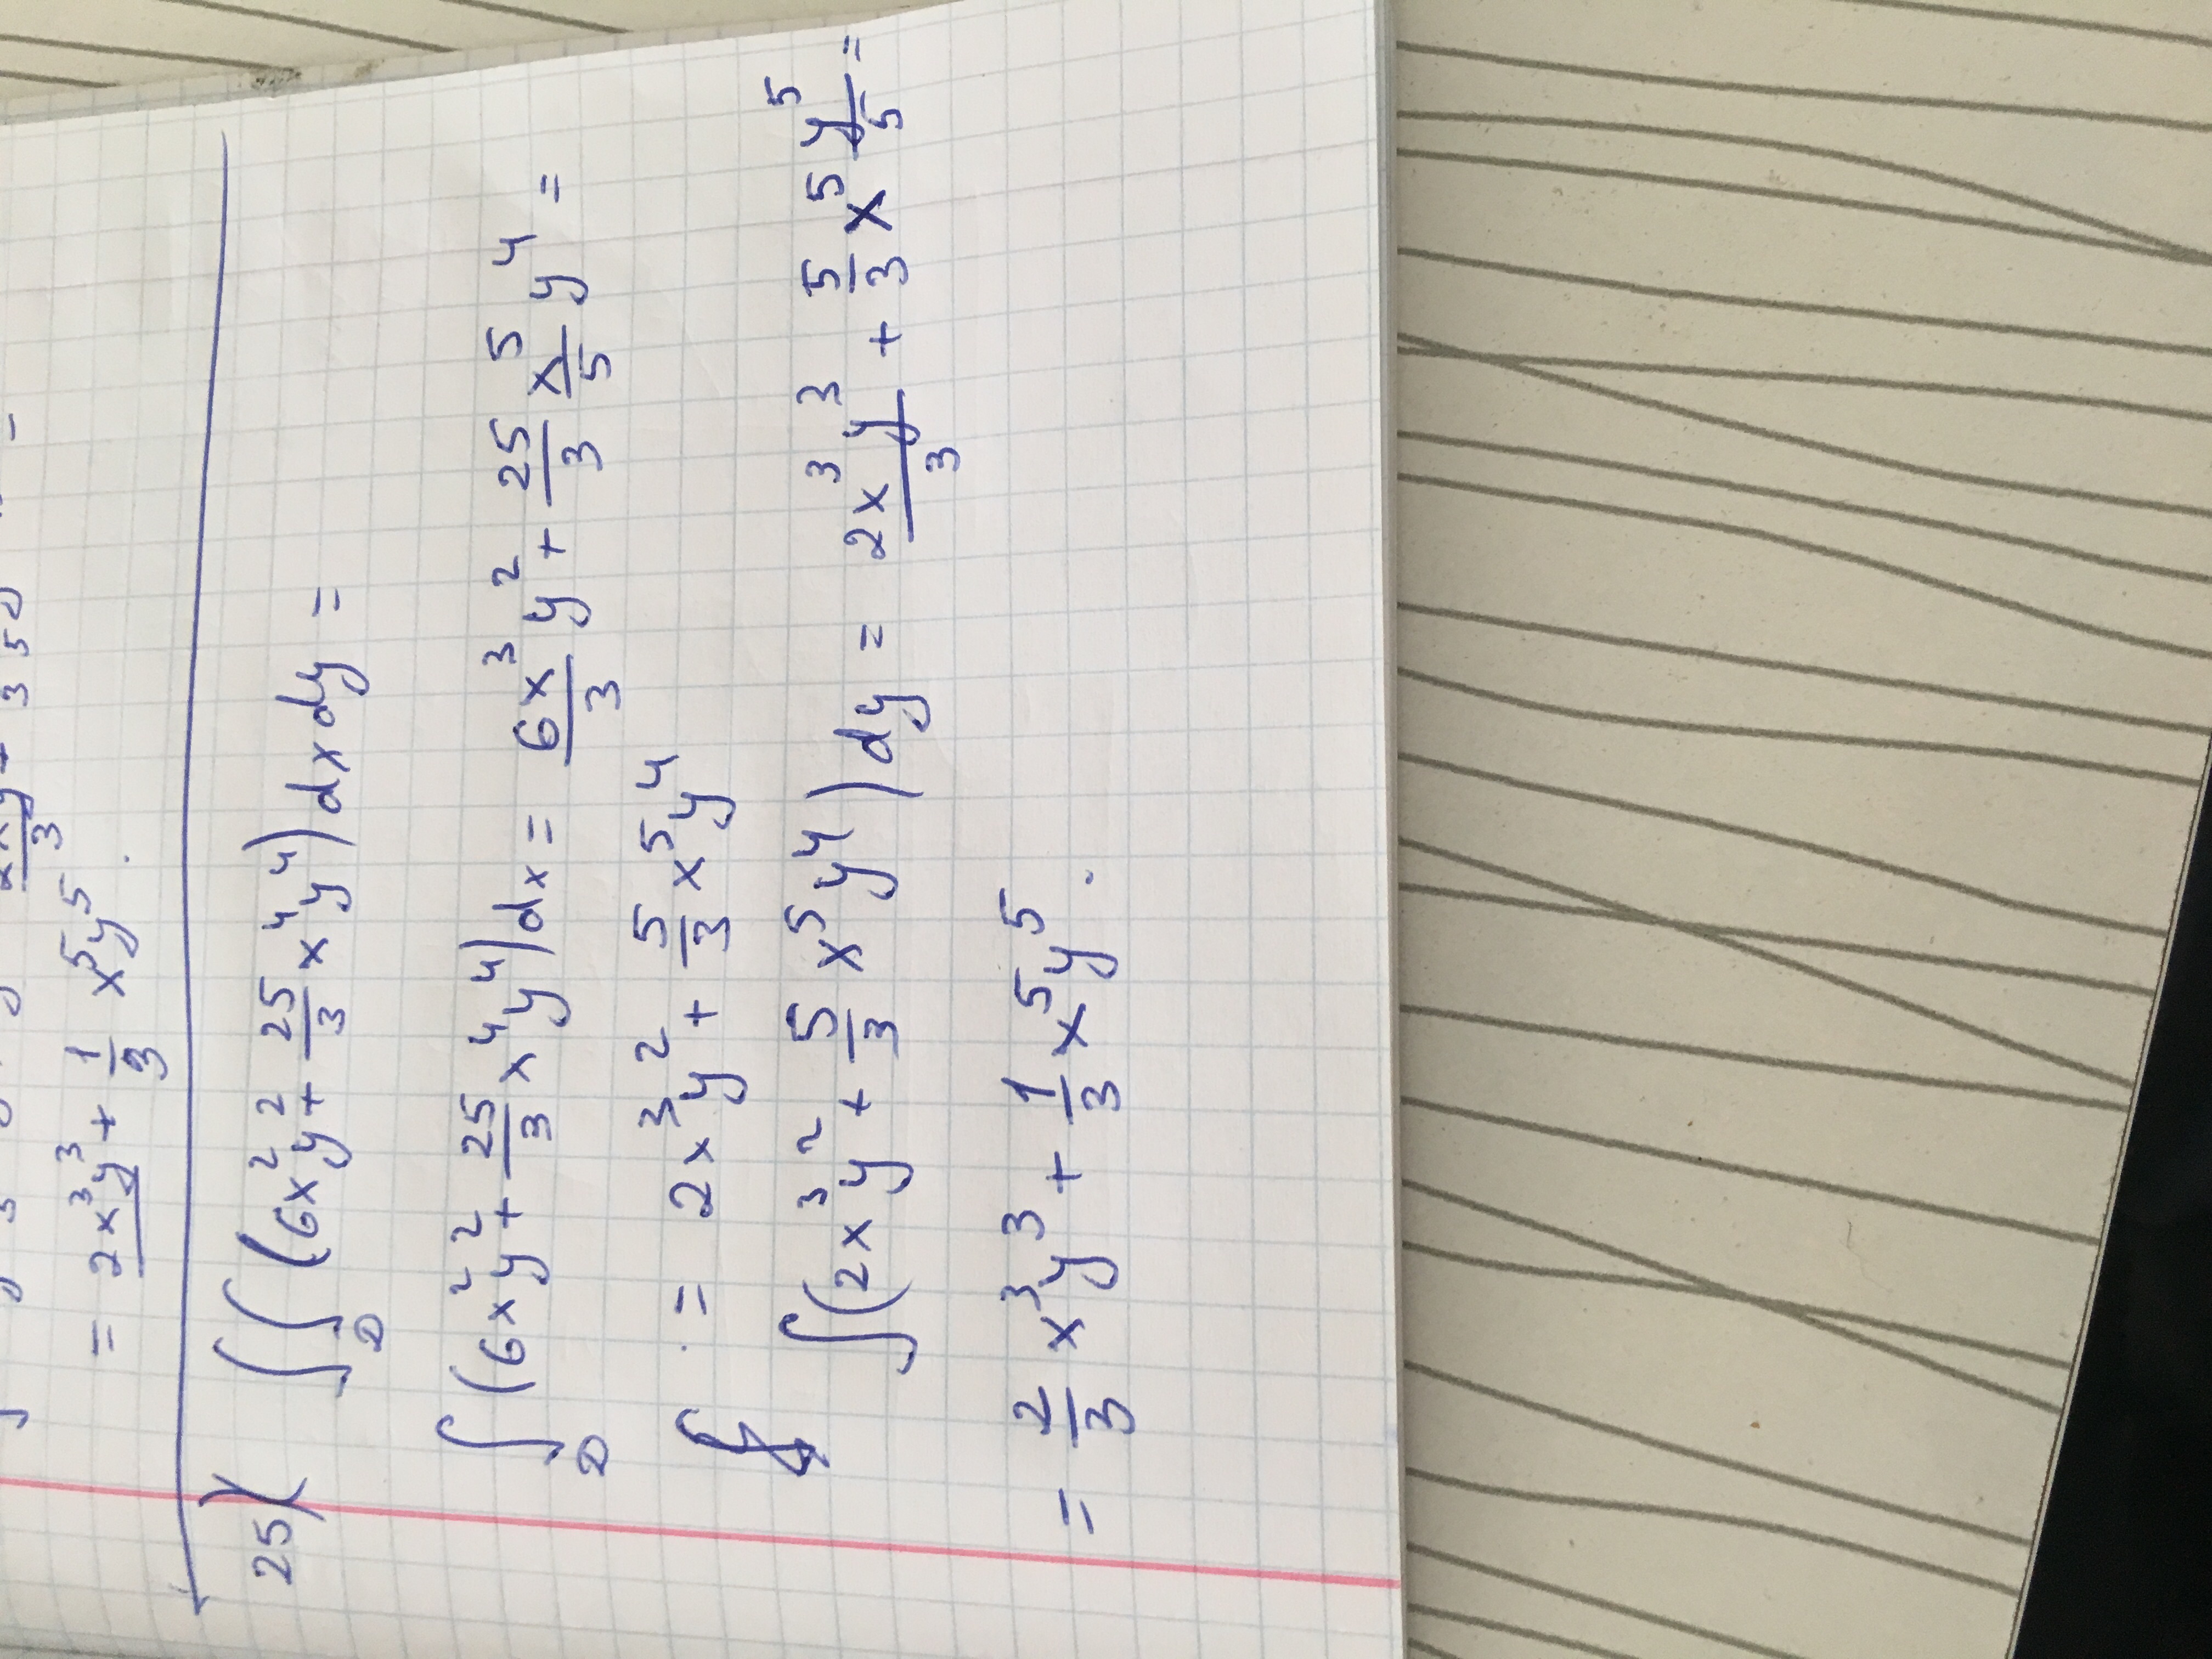 = 2x³y³ + 1/3 x⁵y⁵.
25) ∫∫_D (6x²y² + 25/3 x⁴y⁴) dx dy =
∫_D (6x²y² + 25/3 x⁴y⁴) dx = 6x³/3 y² + 25/3 x⁵/5 y⁴ =
= 2x³y² + 5/3 x⁵y⁴
∫(2x³y² + 5/3 x⁵y⁴) dy = 2x³y³/3 + 5/3 x⁵ y⁵/5 =
= 2/3 x³y³ + 1/3 x⁵y⁵.